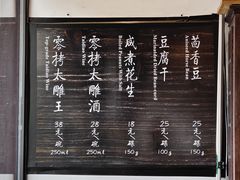 茴香豆
Aniseed Broad Bean
25元/碟
150g
豆腐干
Marinated Dried Bean-curd
25元/碟
100g
咸煮花生
Boiled Peanuts With Salt
18元/碟
150g
零拷太雕酒
Taidiao Wine
28元/碗
250ml
零拷太雕王
Top-grade Taidiao Wine
38元/碗
250ml